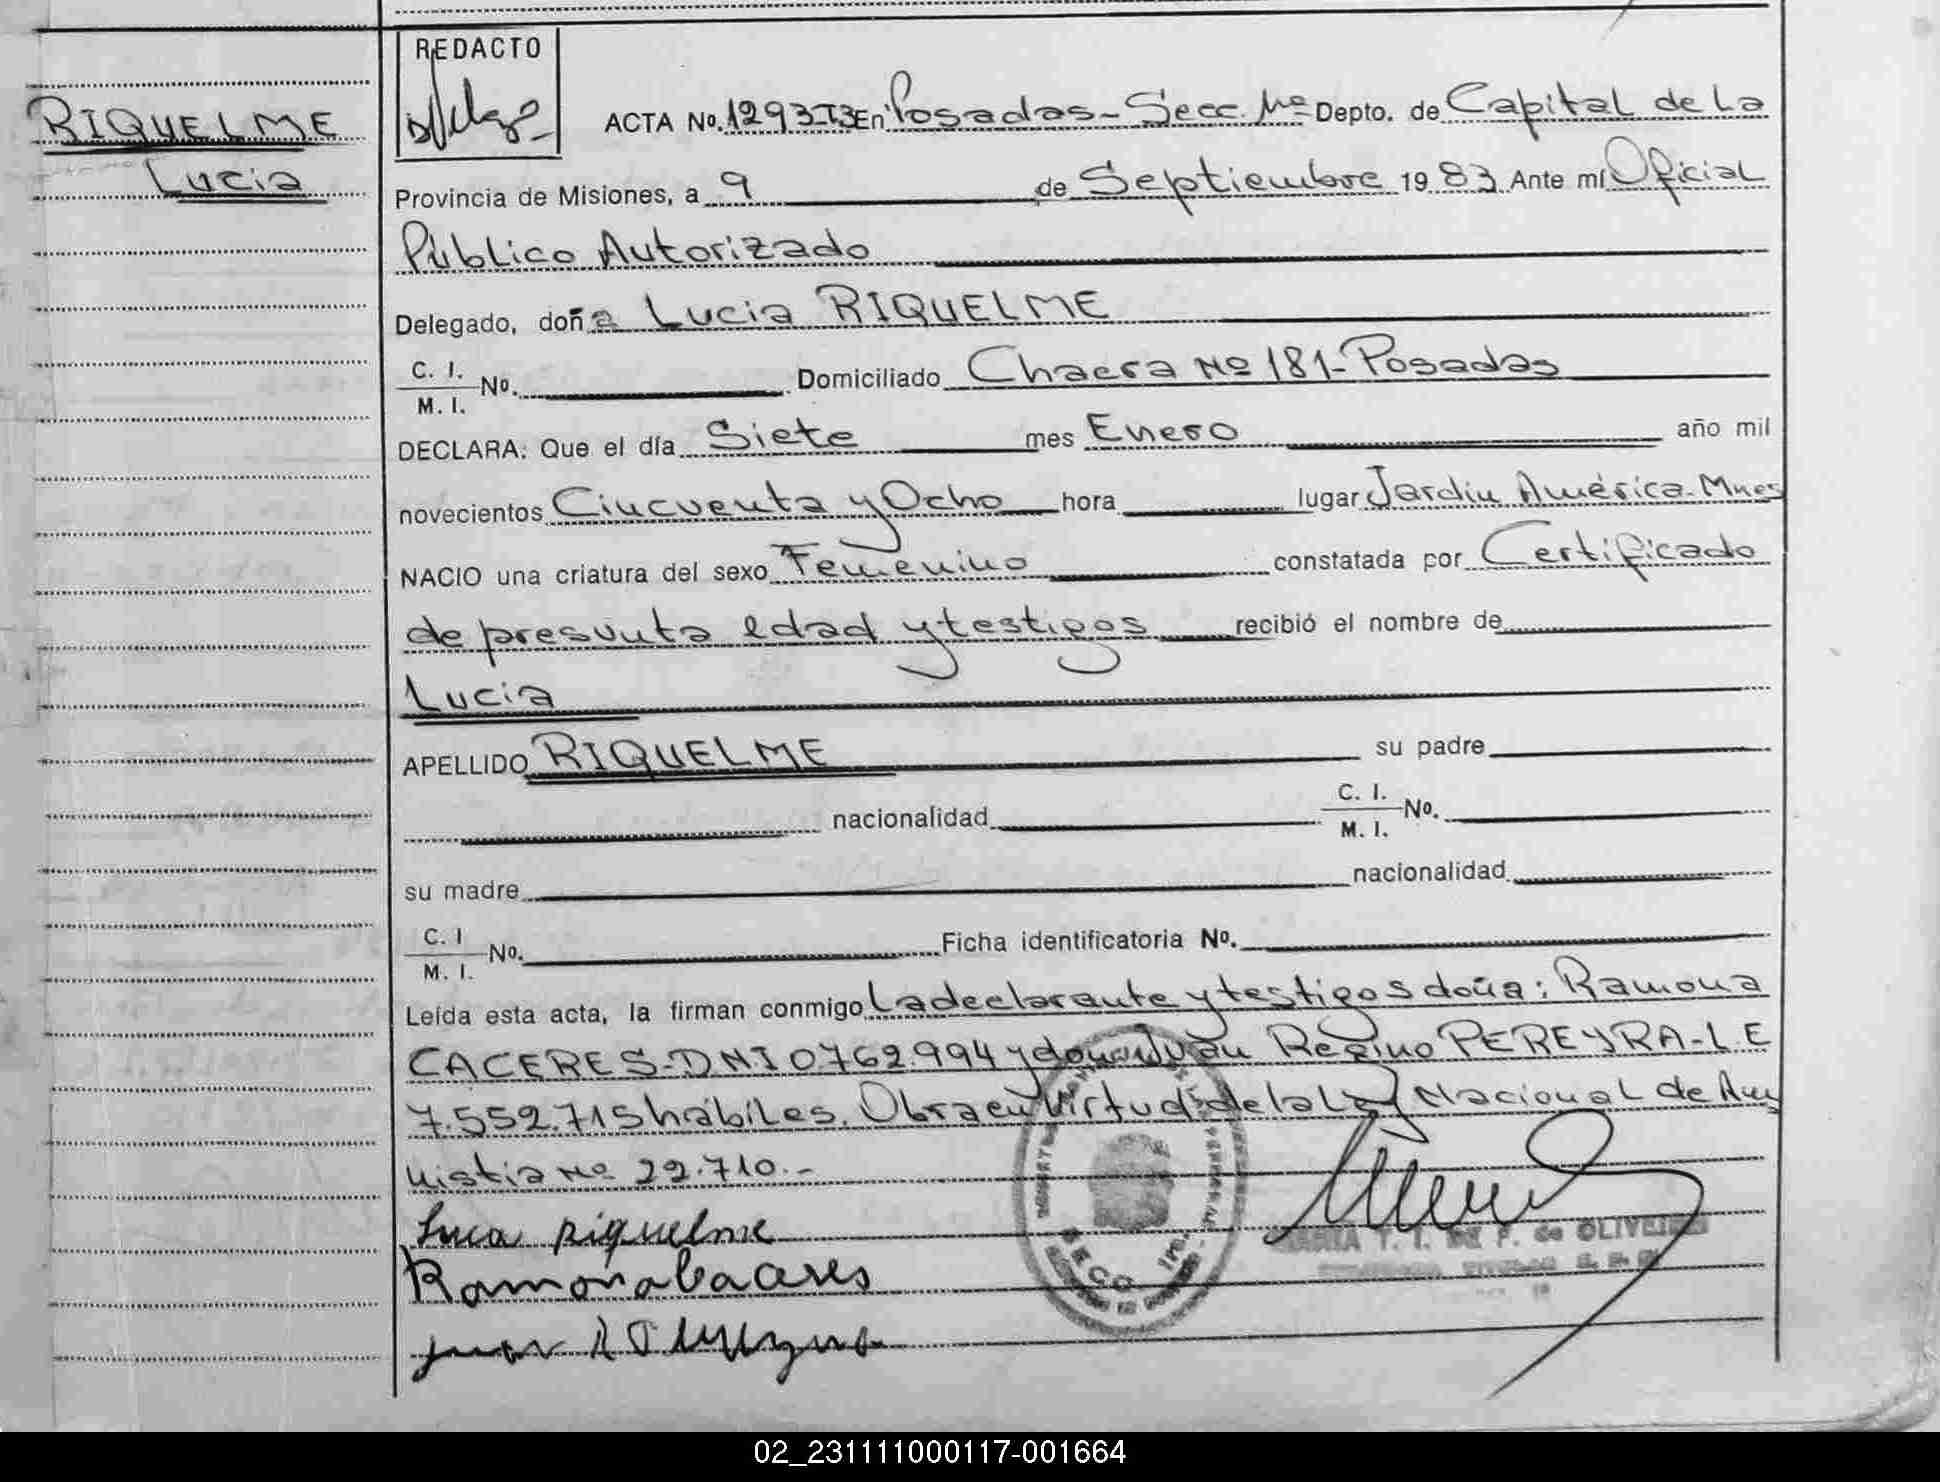 REDACTO
RIQUELME
Lucia
ACTA No. 1293-T3 En Posadas - Secc. 1ra Depto. de Capital de La
Provincia de Misiones, a 9 de Septiembre 1983 Ante mí Oficial
Público Autorizado
Delegado, doña Lucia RIQUELME
C. I. M. I. No. Domiciliado Chacra No 181 - Posadas
DECLARA: Que el día Siete mes Enero año mil
novecientos Cincuenta y Ocho hora lugar Jardin América. Mnes
NACIO una criatura del sexo Femenino constatada por Certificado
de presunta edad y testigos recibió el nombre de
Lucia
APELLIDO RIQUELME su padre
nacionalidad C. I. M. I. No.
su madre nacionalidad
C. I M. I. No. Ficha identificatoria No.
Leída esta acta, la firman conmigo La declarante y testigos doña: Ramona
CACERES - DNI 0.762.994 y don Juan Regino PEREYRA - L.E
7.552.715 hábiles. Obra en virtud de la Ley Nacional de Am
nistia No 22.710.-
Luca riquelme
Ramona Caceres
juan
MARIA T. I. DE F. de OLIVEIRA
02_231111000117-001664